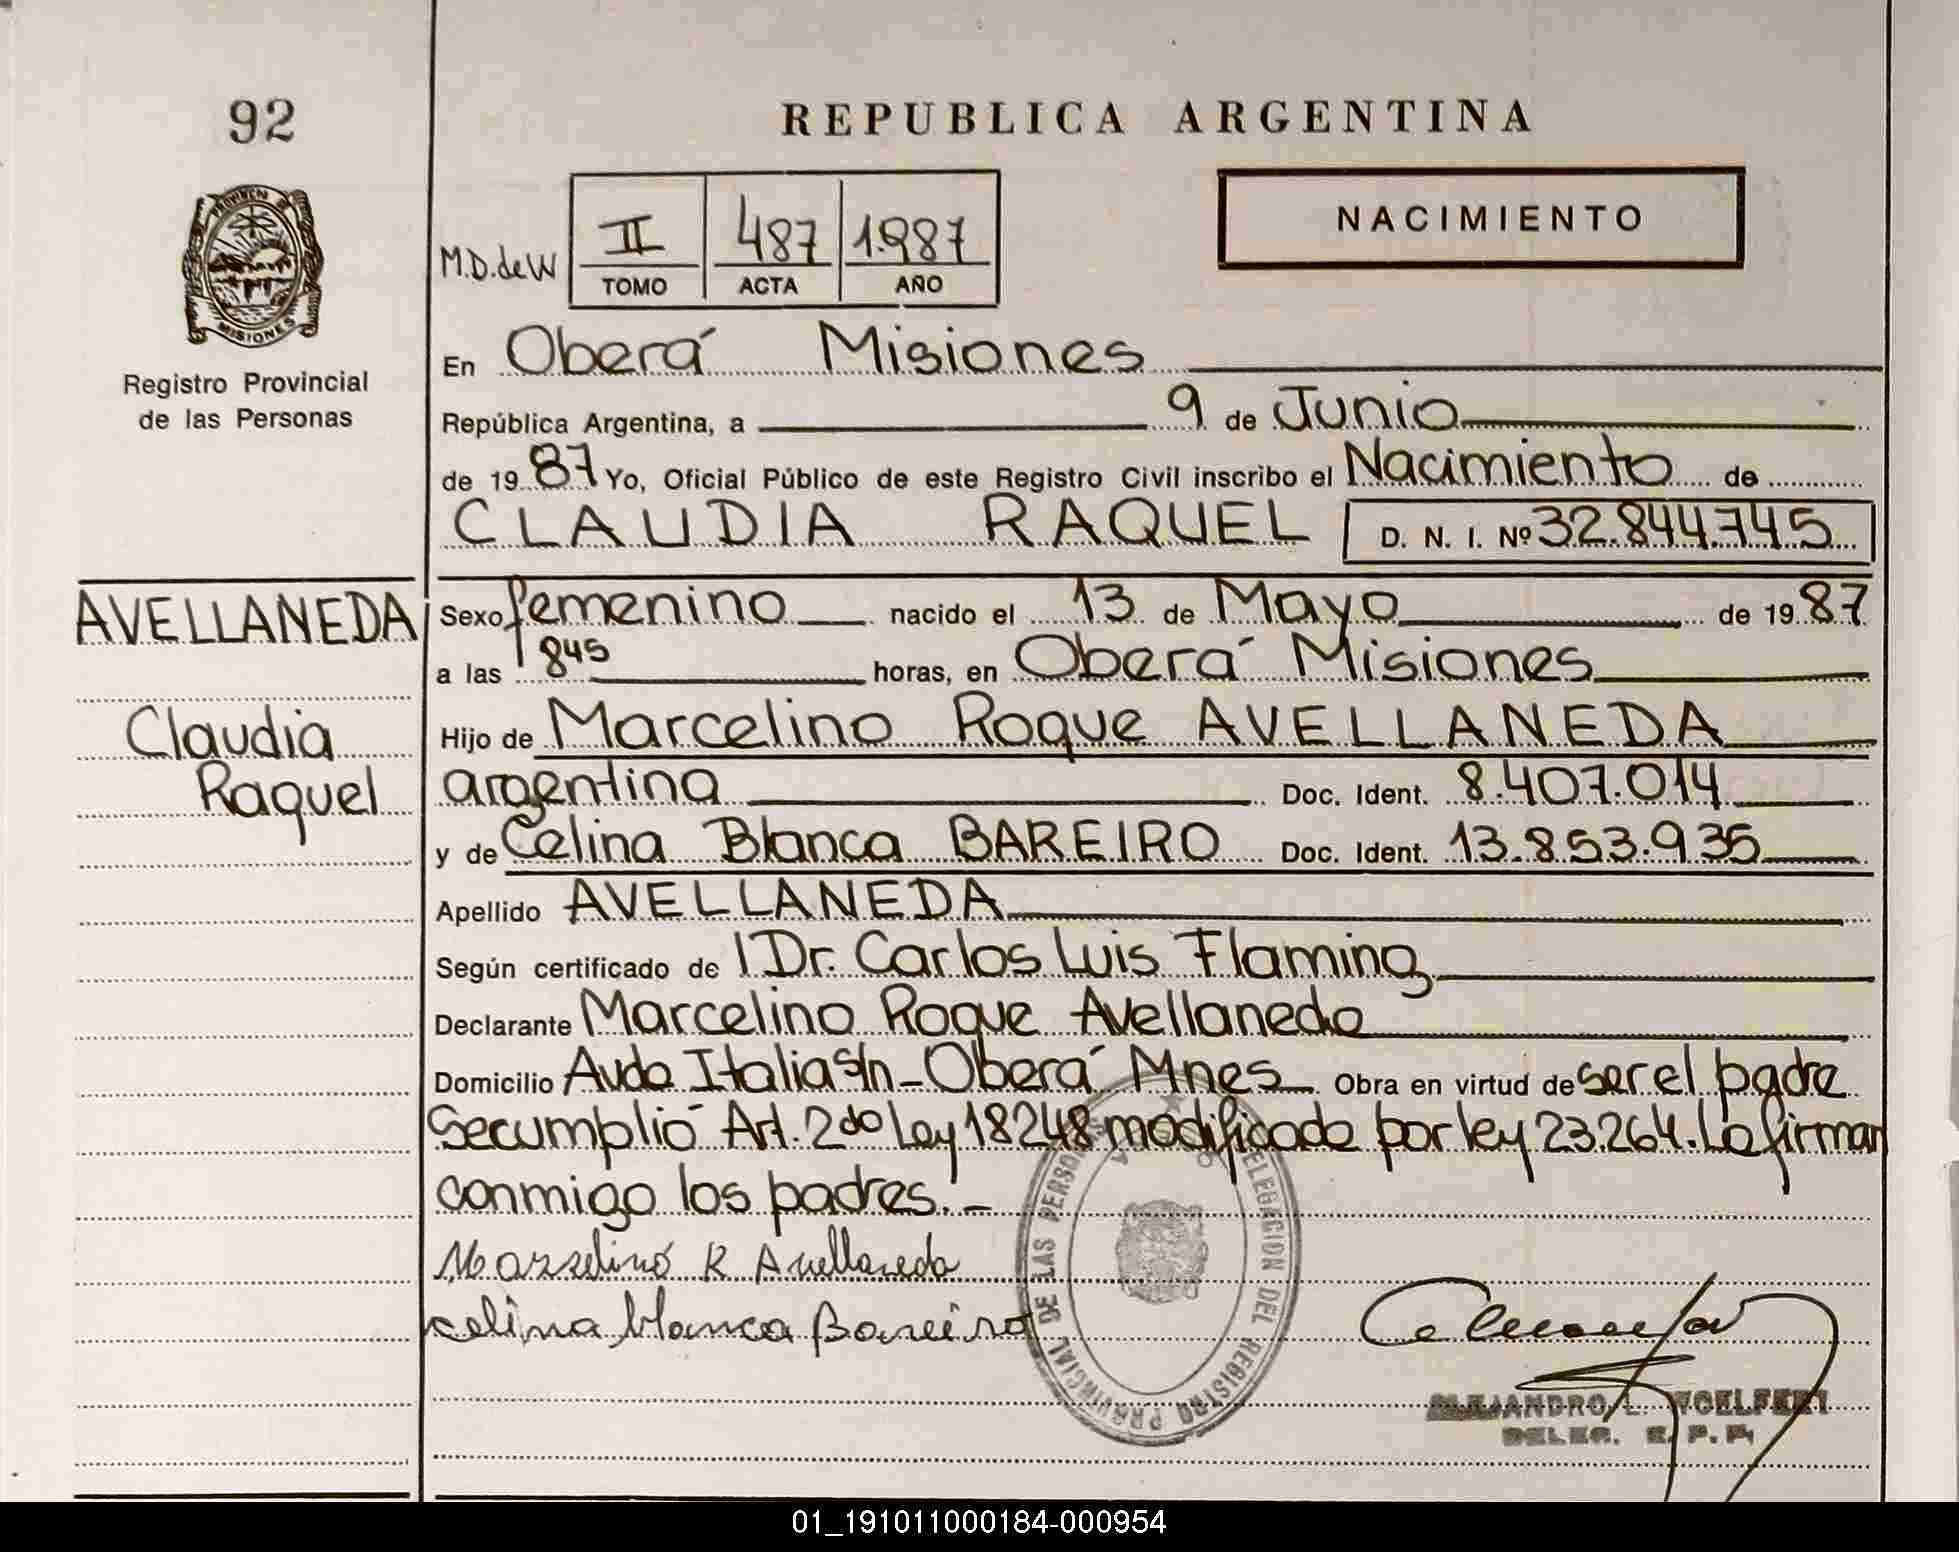 92
REPUBLICA ARGENTINA
PROVINCIA DE
MISIONES
Registro Provincial
de las Personas
M.D.deW
II 487 1.987
TOMO ACTA AÑO
NACIMIENTO
En Oberá Misiones
República Argentina, a 9 de Junio
de 1987 Yo, Oficial Público de este Registro Civil inscribo el Nacimiento de
CLAUDIA RAQUEL D. N. I. Nº 32.844.745
AVELLANEDA
Claudia
Raquel
Sexo femenino nacido el 13 de Mayo de 1987
a las 845 horas, en Oberá Misiones
Hijo de Marcelino Roque AVELLANEDA
argentina Doc. Ident. 8.407.014
y de Celina Blanca BAREIRO Doc. Ident. 13.853.935
Apellido AVELLANEDA
Según certificado de l Dr. Carlos Luis Flaming
Declarante Marcelino Roque Avellaneda
Domicilio Avda Italia S/n - Oberá Mnes Obra en virtud de ser el padre
Se cumplió Art. 2do Ley 18248 modificada por ley 23.264. La firman
conmigo los padres.-
Marselino R Avellaneda
celina blanca Bareiro
DELEGACION DEL REGISTRO PROVINCIAL DE LAS PERSONAS
ALEJANDRO L. WOELFERT
DELEG. R. P. P.
01_191011000184-000954